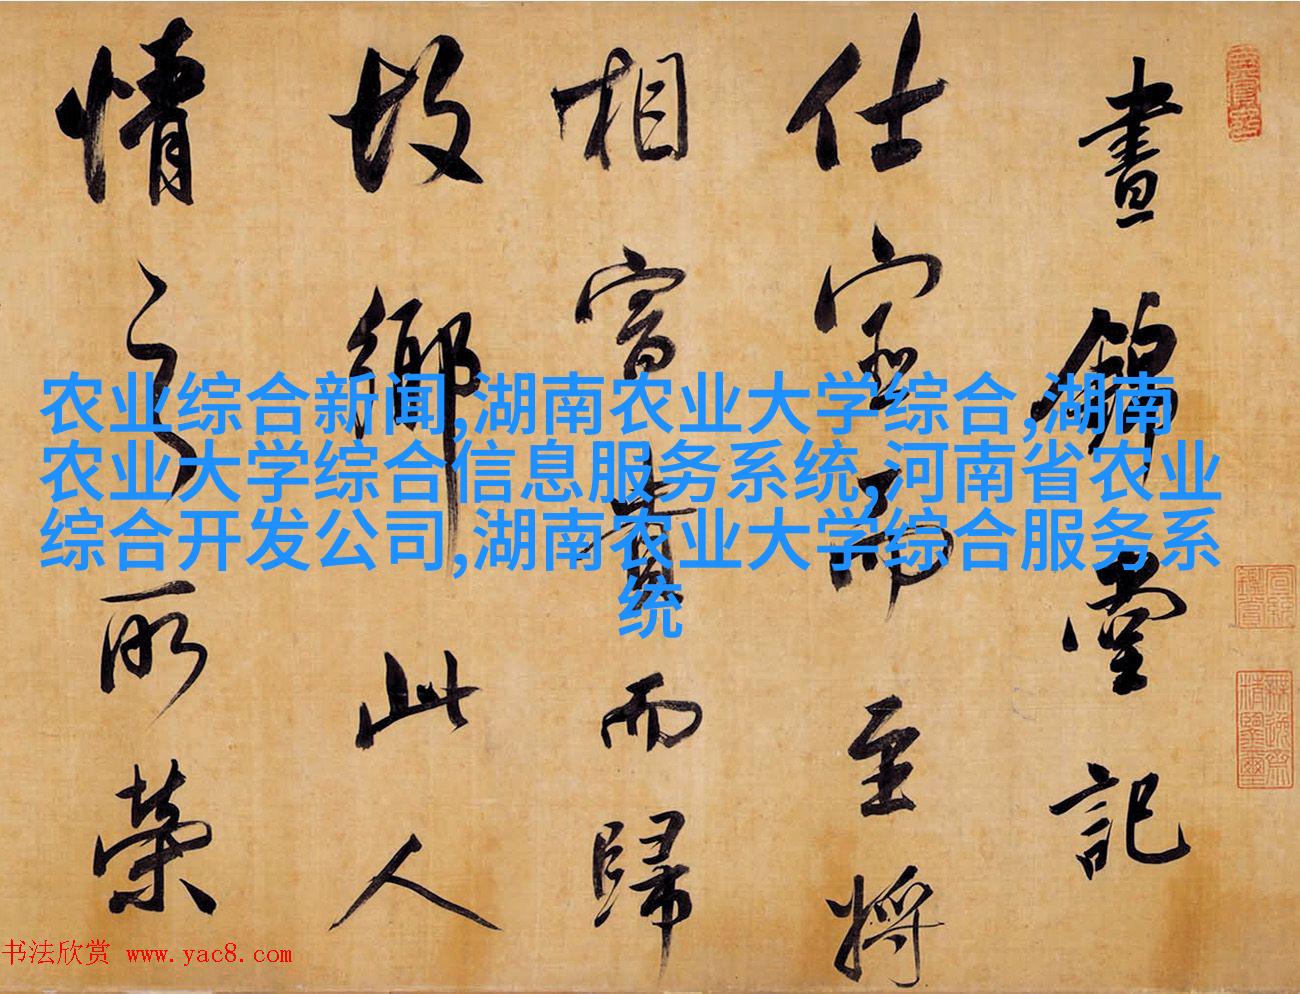 晝錦堂記
仕宦而至將
相富貴而歸
故鄉此人
情之所榮
农业综合新闻,湖南农业大学综合,湖南
农业大学综合信息服务系统,河南省农业
综合开发公司,湖南农业大学综合服务系
统
书法欣赏 www.yac8.com